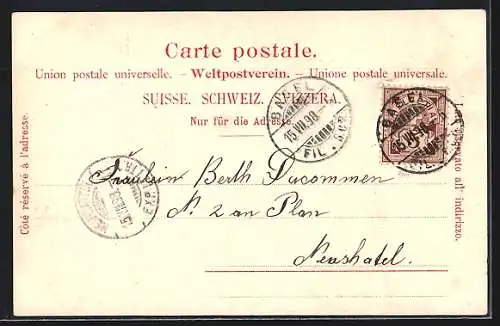 Carte postale.
Union postale universelle. – Weltpostverein. – Unione postale universale.
SUISSE. SCHWEIZ. SVIZZERA.
Nur für die Adresse.
Côté réservé à l'adresse.
all' indirizzo.
BASEL
15.VII.98
FIL.
BASEL
15.VII.98
Fräulein Berth Ducommen
N. 2 an Plan
Neushatel.